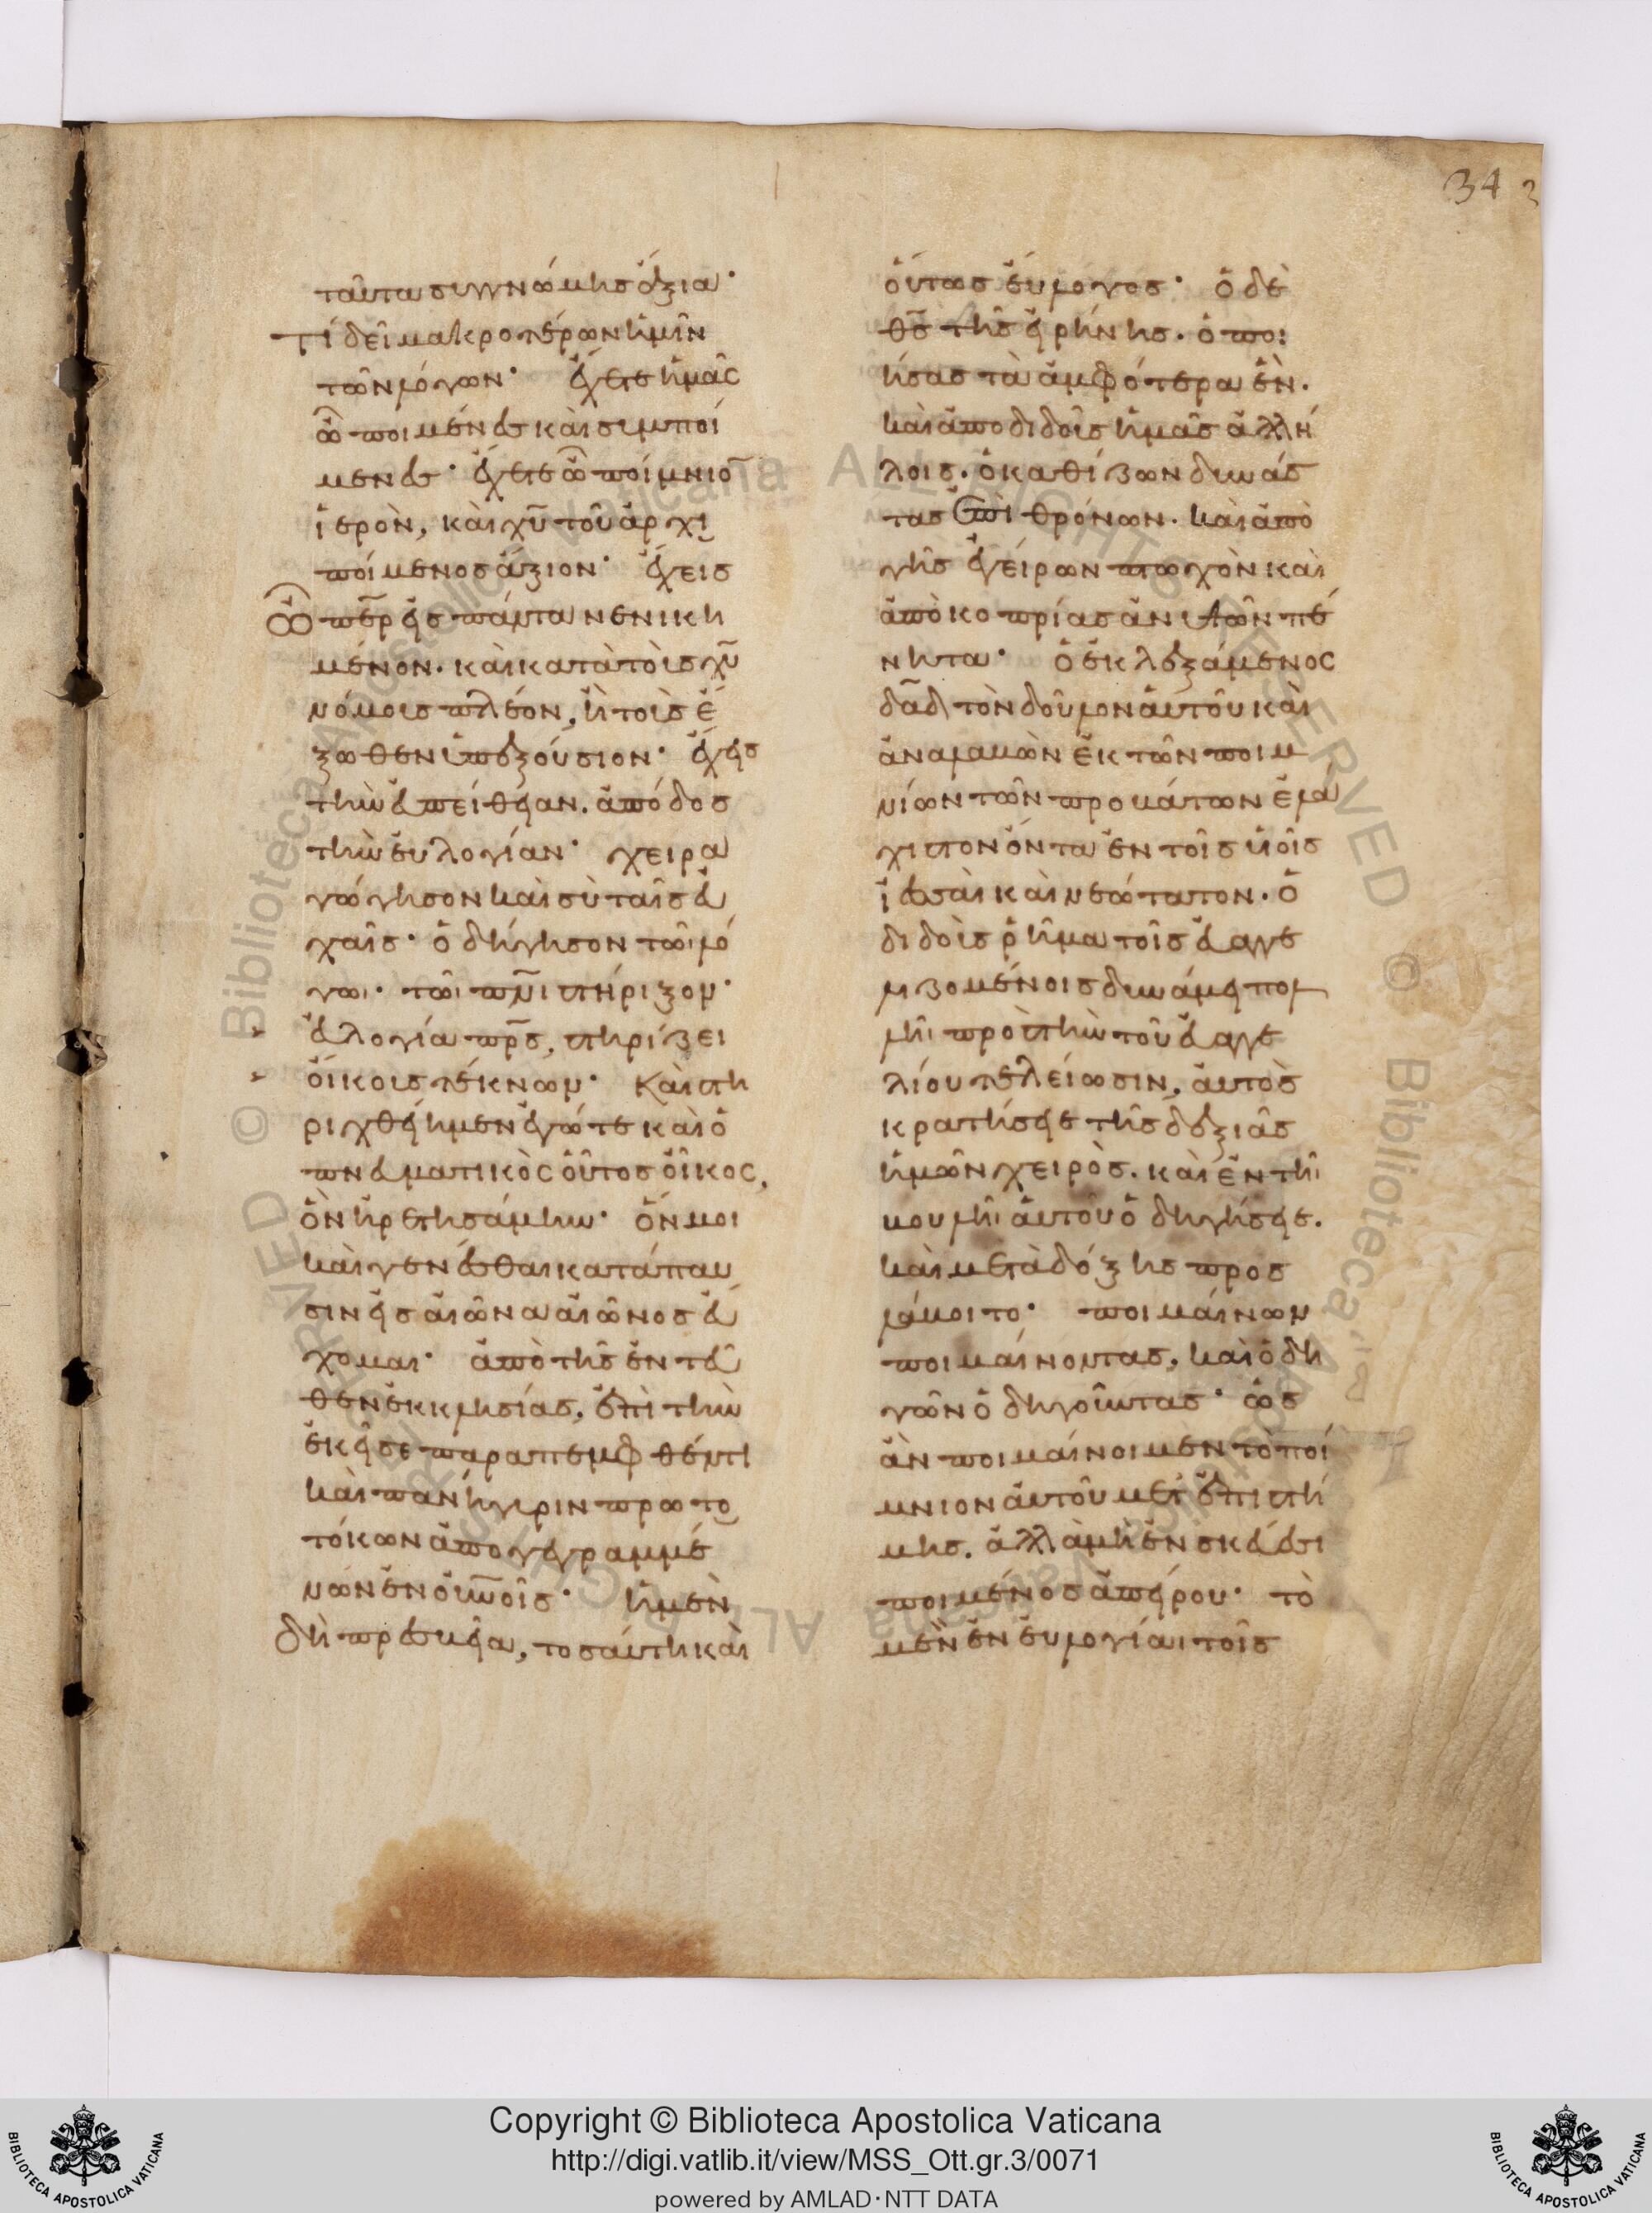 34
ταῦτα συγγνώμης ἄξια·
Τί δεῖ μακροτέρων ἡμῖν
τῶν λόγων· ἔχεις ἡμᾶς
ὦ ποιμένες καὶ συμποί
μενες· ἔχεις ὦ ποίμνιον
ἱερὸν, καὶ χῦ τοῦ ἀρχι
ποίμενος ἄξιον· ἔχεις
ὦ περ εἰς πάντα νενικη
μένον. καὶ κατὰ τοὺς χῦ
νόμους πλέον, ἢ τοὺς ἔ
ξωθεν ὑπεξούσιον· ἔχεις
τὴν εὐπείθειαν. ἀπόδος
τὴν εὐλογίαν· χειρα
γώγησον καὶ σὺ ταῖς εὐ
χαῖς· ὁδήγησον τῶι λό
γωι· τῶι πνι στήριξον·
εὐλογία πρς, στηρίζει
οἴκους τέκνων· Καὶ στη
ριχθείημεν ἐγώ τε καὶ ὁ
πνευματικὸς οὗτος οἶκος,
ὃν ἡρετησάμην· ὅν μοι
καὶ γενέσθαι κατάπαυ
σιν εἰς αἰῶνα αἰῶνος εὔ
χομαι· ἀπὸ τῆς ἐνταῦ
θεν ἐκκλησίας, ἐπὶ τὴν
ἐκεῖσε παραπεμφθέντι
καὶ πανήγυριν πρωτο
τόκων ἀπογεγραμμέ
νων ἐν οὐνοῖς· ἡ μὲν
δὴ πρεσβεία, τοσαύτη καὶ
οὕτως εὔλογος· ὁ δὲ
θς τῆς εἰρήνης. ὁ ποι
ήσας τὰ ἀμφότερα ἓν.
καὶ ἀποδιδοῖς ἡμᾶς ἀλλή
λοις. ὁ καθίζων δυνάσ
τας ἐπὶ θρόνων. καὶ ἀπὸ
γῆς ἐγείρων πτωχὸν καὶ
ἀπὸ κοπρίας ἀνιστῶν πέ
νητα· ὁ ἐκλεξάμενος
δᾱδ τὸν δοῦλον αὐτοῦ καὶ
ἀναλαβὼν ἐκ τῶν ποιμ
νίων τῶν προβάτων ἐλά
χιστον ὄντα ἐν τοῖς υἱοῖς
ἰεσσαὶ καὶ νεώτατον. ὁ
διδοὺς ῥῆμα τοῖς εὐαγγε
λιζομένοις δυνάμει πολ
λῆι πρὸς τὴν τοῦ εὐαγγε
λίου τελείωσιν, αὐτὸς
κρατήσειε τῆς δεξιᾶς
ἡμῶν χειρὸς. καὶ ἐν τῆι
βουλῆι αὐτοῦ ὁδηγήσειε.
καὶ μετὰ δόξης προσ
λάβοιτο· ποιμαίνων
ποιμαίνοντας, καὶ ὁδη
γῶν ὁδηγοῦντας· ὡς
ἂν ποιμαίνοιμεν τὸ ποί
μνιον αὐτοῦ μετ' ἐπιστή
μης. ἀλλὰ μὴ ἐν σκεύεσι
ποιμένος ἀπείρου· τὸ
μὲν ἐν εὐλογίαι τοῖς
Copyright © Biblioteca Apostolica Vaticana
http://digi.vatlib.it/view/MSS_Ott.gr.3/0071
powered by AMLAD·NTT DATA